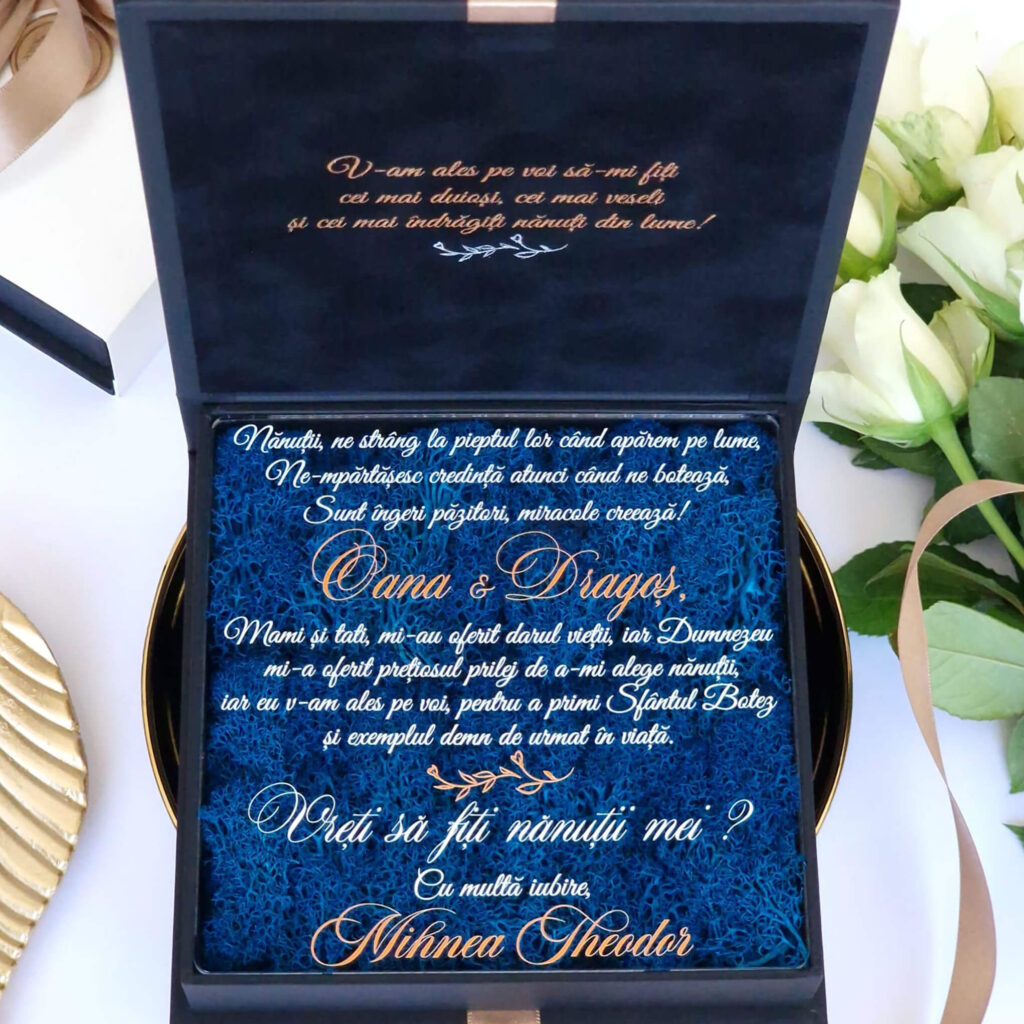 V-am ales pe voi să-mi fiți
cei mai duioși, cei mai veseli
și cei mai îndrăgiți nănuți din lume!
Nănuții, ne strâng la pieptul lor când apărem pe lume,
Ne-mpărtășesc credință atunci când ne botează,
Sunt îngeri păzitori, miracole creează!
Oana & Dragoș,
Mami și tati, mi-au oferit darul vieții, iar Dumnezeu
mi-a oferit prețiosul prilej de a-mi alege nănuții,
iar eu v-am ales pe voi, pentru a primi Sfântul Botez
și exemplul demn de urmat în viață.
Vreți să fiți nănuții mei ?
Cu multă iubire,
Mihnea Theodor